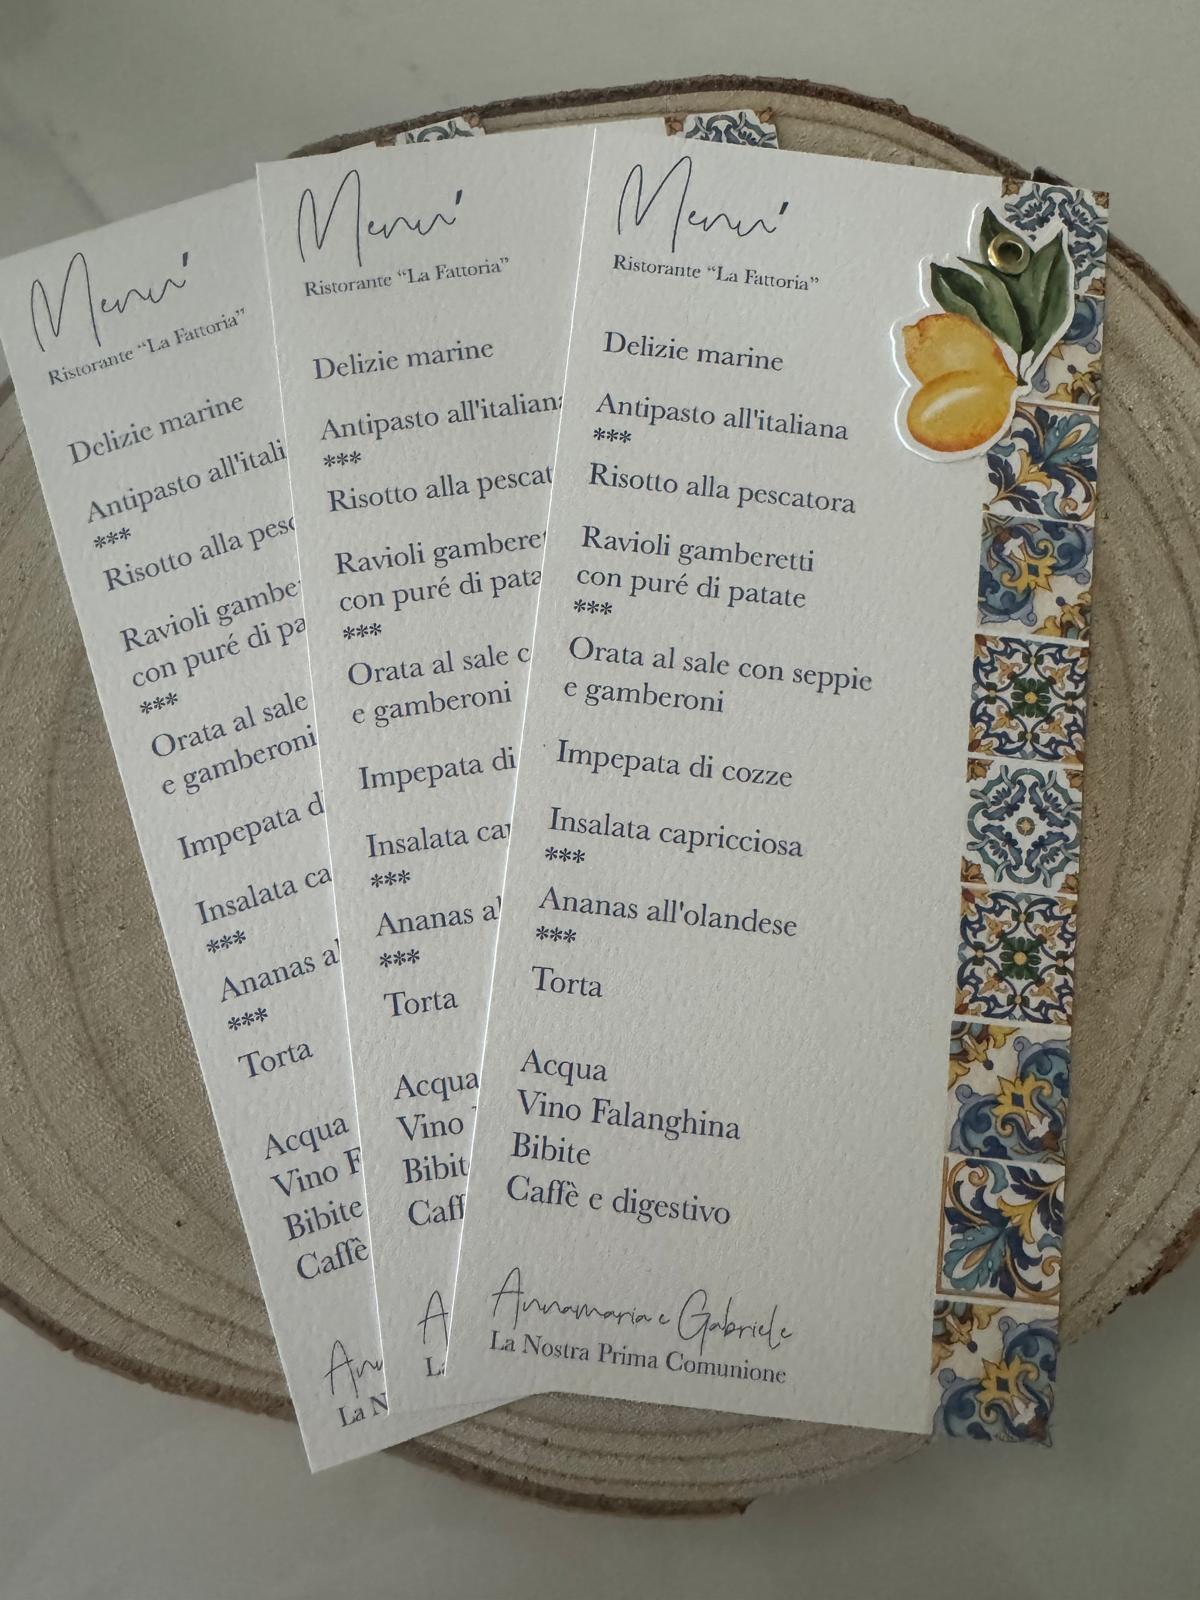 Menu'
Ristorante “La Fattoria”
Delizie marine
Antipasto all'itali
***
Risotto alla pesc
Ravioli gambe
con puré di pa
***
Orata al sale
e gamberoni
Impepata d
Insalata ca
***
Ananas al
***
Torta
Acqua
Vino F
Bibite
Caffè
Ann
La N
Menu'
Ristorante “La Fattoria”
Delizie marine
Antipasto all'italiana
***
Risotto alla pescat
Ravioli gamberet
con puré di pata
***
Orata al sale c
e gamberoni
Impepata di
Insalata cap
***
Ananas al
***
Torta
Acqua
Vino
Bibit
Caff
A
La
Menu'
Ristorante “La Fattoria”
Delizie marine
Antipasto all'italiana
***
Risotto alla pescatora
Ravioli gamberetti
con puré di patate
***
Orata al sale con seppie
e gamberoni
Impepata di cozze
Insalata capricciosa
***
Ananas all'olandese
***
Torta
Acqua
Vino Falanghina
Bibite
Caffè e digestivo
Annamaria e Gabriele
La Nostra Prima Comunione